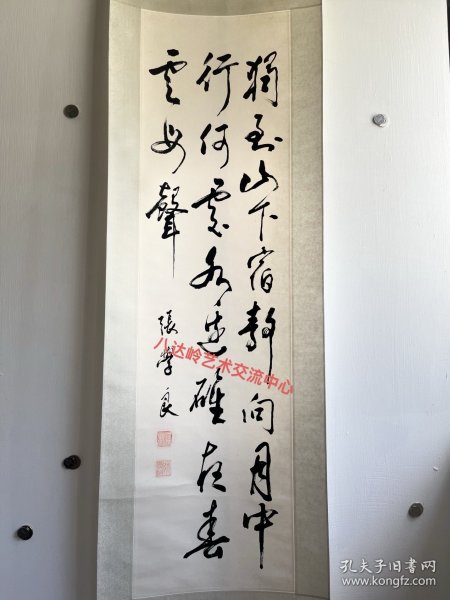 獨到山下宿靜向月中
行何處水邊碓夜舂
雲母聲
張學良
八达岭艺术交流中心
孔夫子旧书网
www.kongfz.com